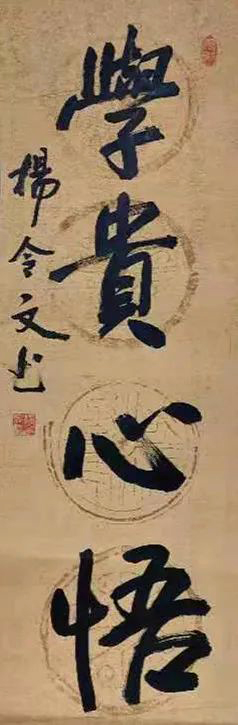 學貴心悟
楊令文书